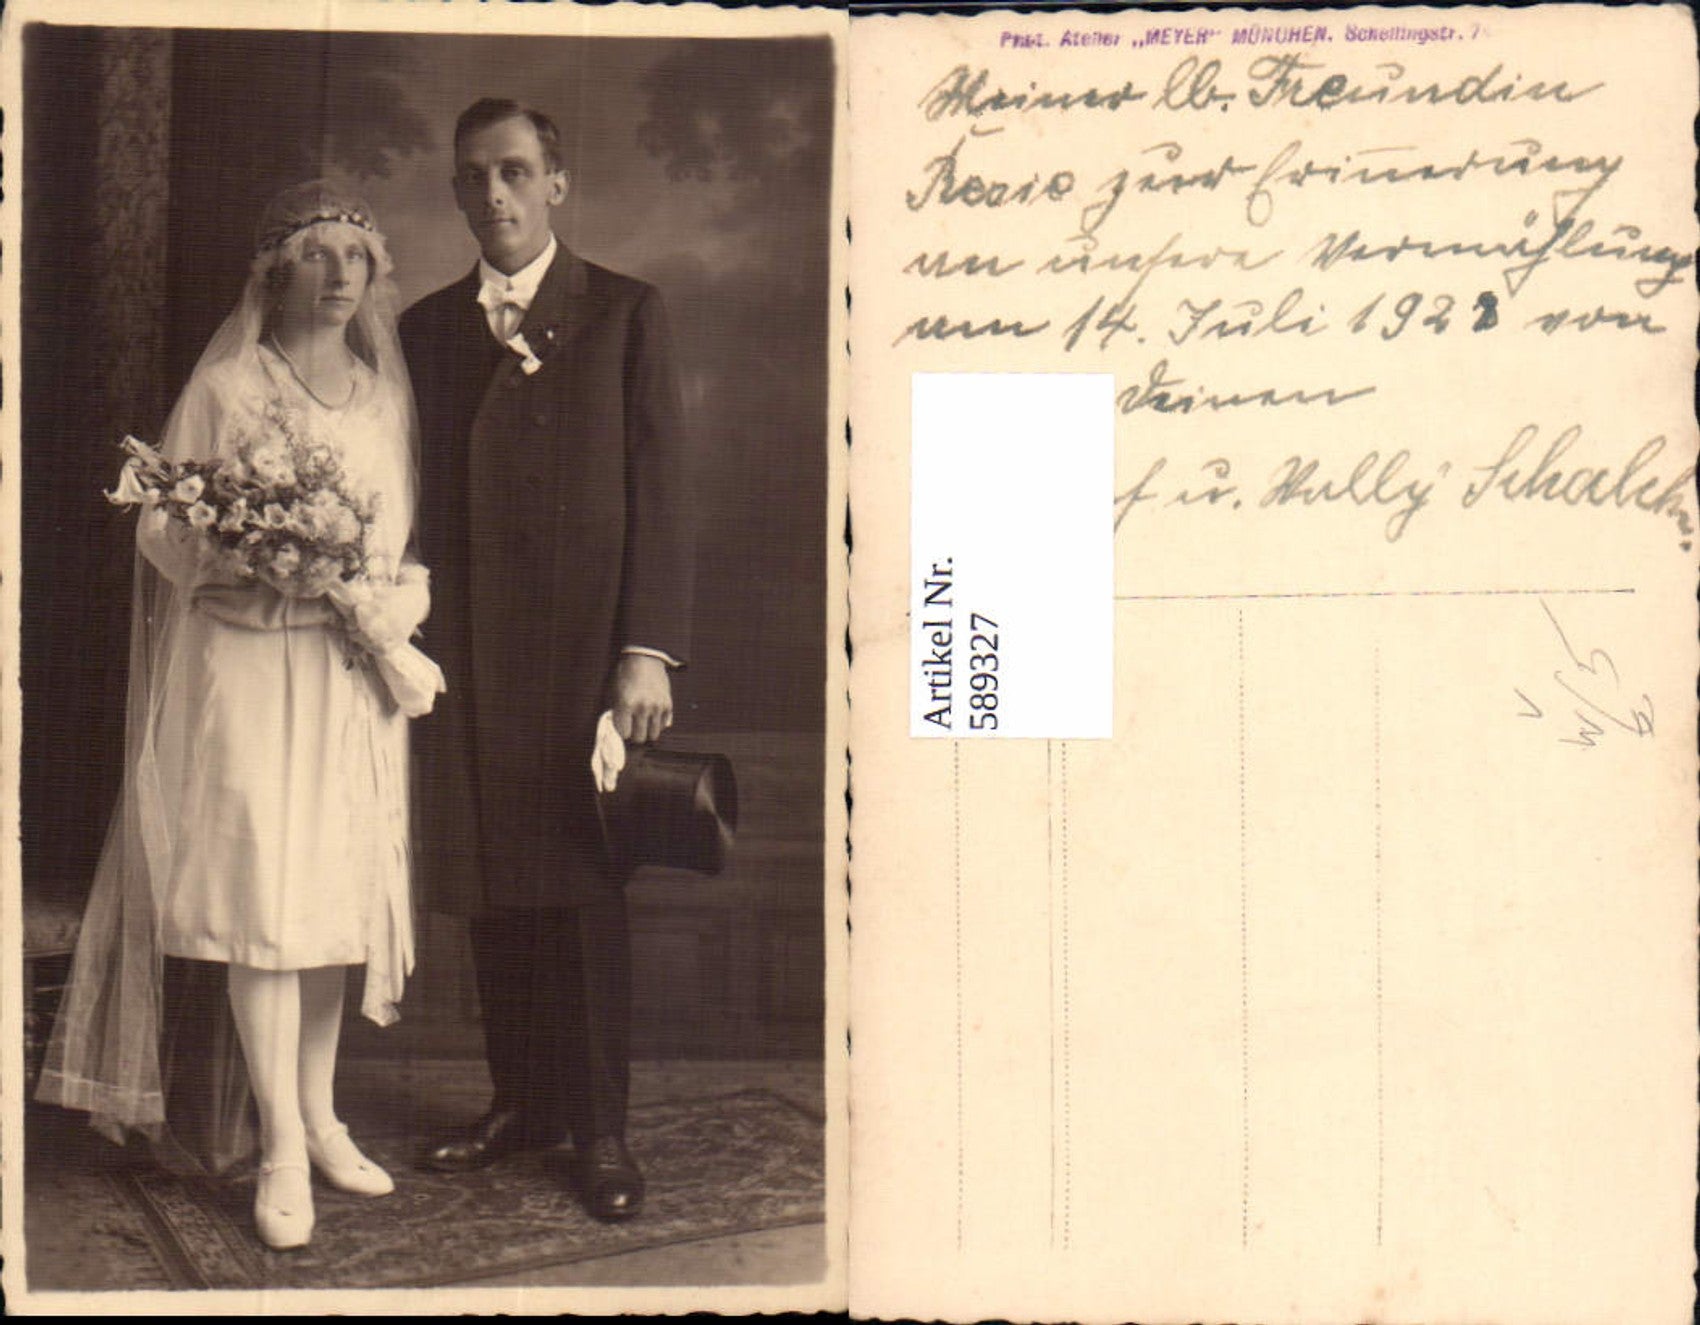 Phot. Atelier „MEYER" MÜNCHEN, Schellingstr.
Meiner lb. Freundin
Resie zur Erinnerung
an unsere Vermählung
am 14. Juli 1928 von
Deinen
f u. Wally Schalch.
Artikel Nr.
589327